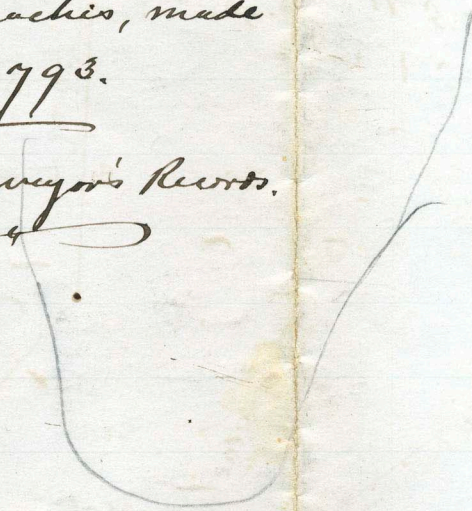 aches, made
793.
veyor's Records.